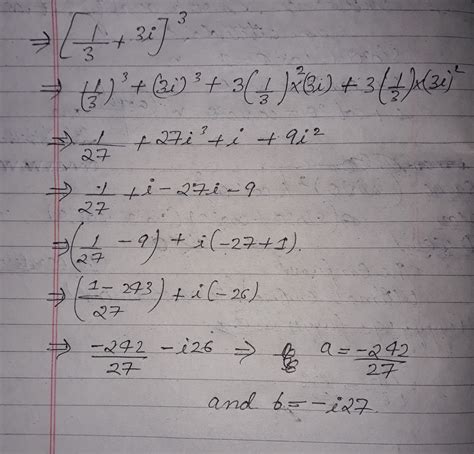 ⇒ [1/3 + 3i]^3
⇒ (1/3)^3 + (3i)^3 + 3(1/3)^2×(3i) + 3(1/3)×(3i)^2
⇒ 1/27 + 27i^3 + i + 9i^2
⇒ 1/27 + i - 27i - 9
⇒ (1/27 - 9) + i(-27+1).
⇒ (1-243/27) + i(-26)
⇒ -242/27 - i26 ⇒ a = -242/27
and b = -i27.